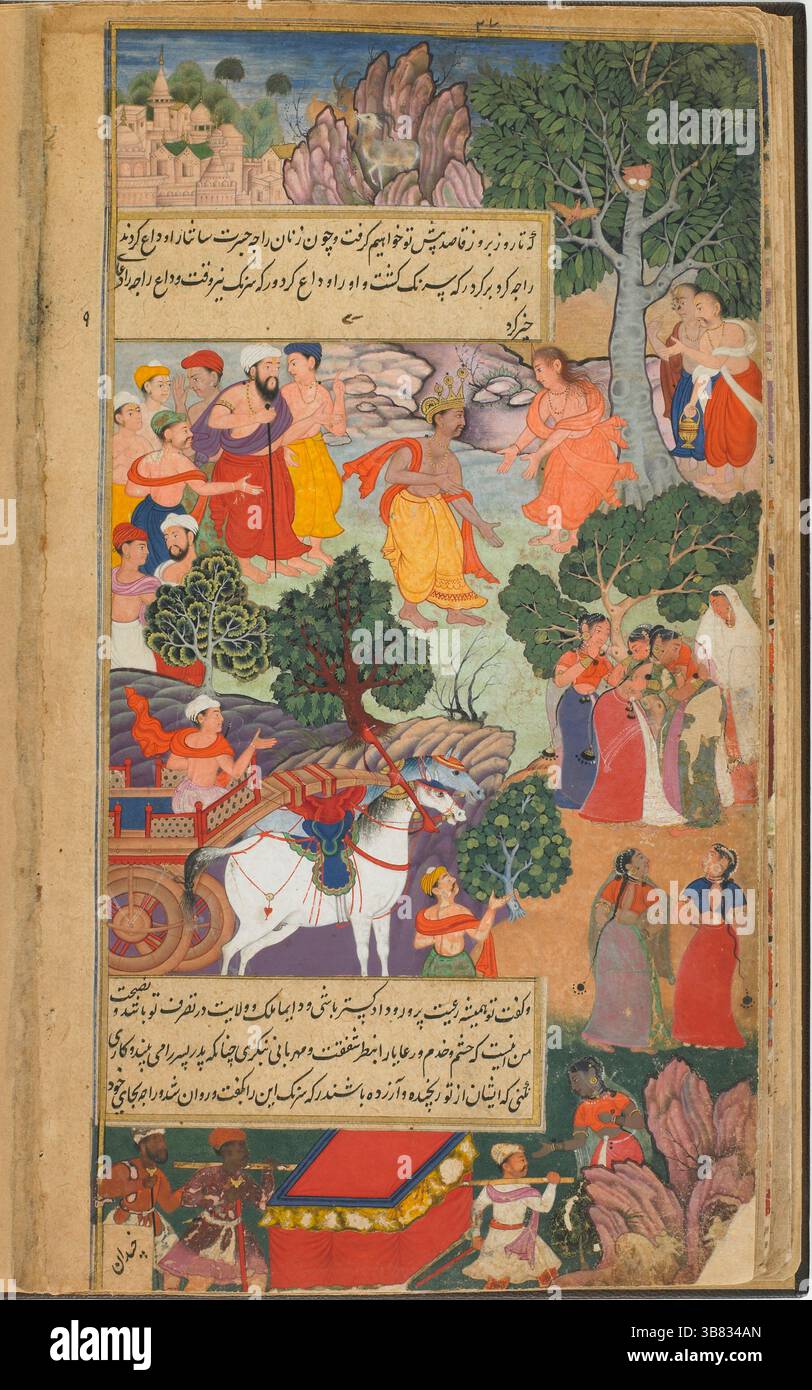 که تا روز بروز قاصد پیش تو خواهیم گرفت و چون زنان راجه حیرت سانتا را وداع کردند
راجه کرد برکرد رکه سرنک کشت و او را وداع کرد و رکه سرنک نیز وقت وداع راجه را دعای
خیر کرد
alamy
٩
alamy
alamy
وکفت تو همیشه رعیت پرور و داد کستر باشی و دایما ملک و ولایت در تصرف تو باشد و نصیحت
من اینست که حشم و خدم و رعایا را بنظر شفقت و مهربانی بنکری چنانکه پدر پسر را می بیند و کاری
نکنی که ایشان از تو رنجیده و آزرده باشند رکه سرنک این را بکفت و روان شد و راجه بجای خود
alamy
Image ID: 3B834AN
www.alamy.com